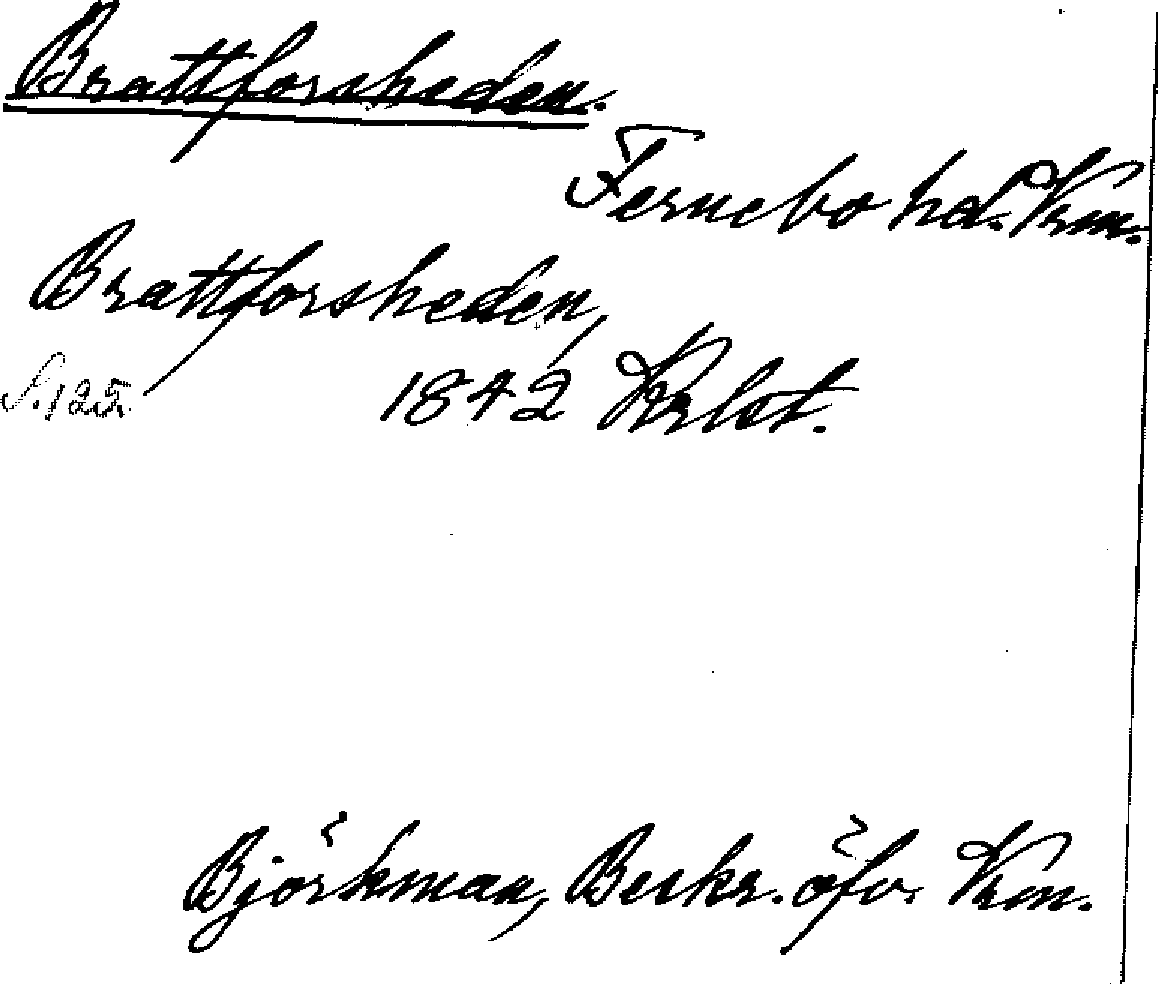 Brattforsheden.
Fernebo hd. Vrm.
Brattforsheden,
S. 125. 1842 Krlst.
Björkman, Beskr. öfv. Vrm.